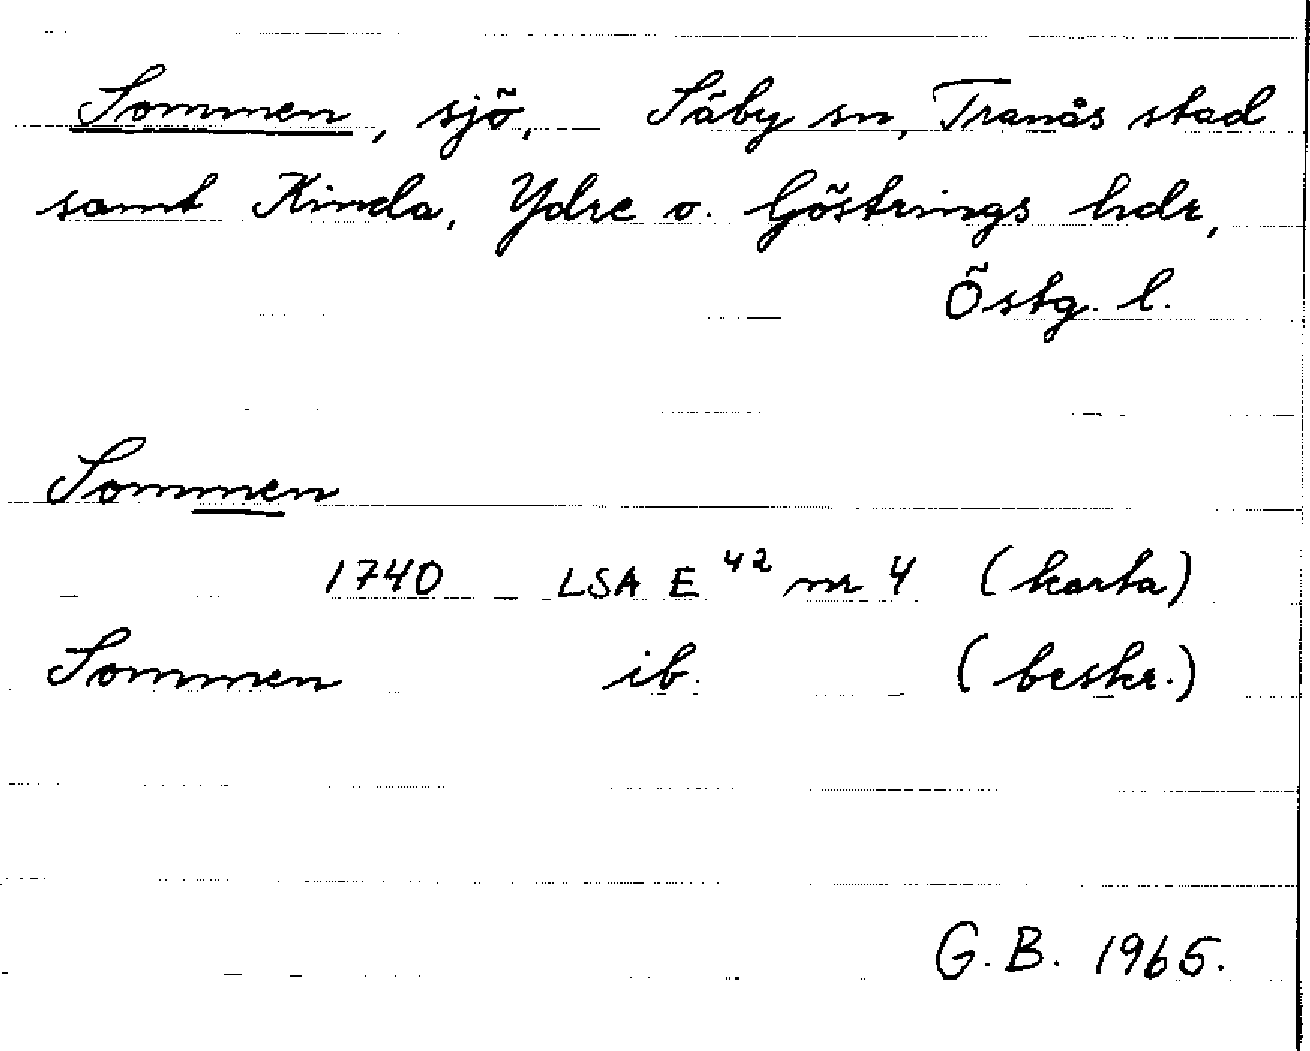 Sommen, sjö, Säby sn, Tranås stad
samt Kinda, Ydre o. Göstrings hdr,
Östg. l.
Sommen
1740 LSA E 42 nr 4 (karta)
Sommen ib. (beskr.)
G.B. 1965.